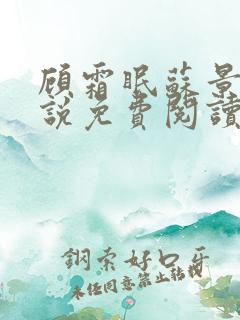 顾霜眠蘇景
説免費閱讀
鋼索好口牙
未經同意禁止轉載